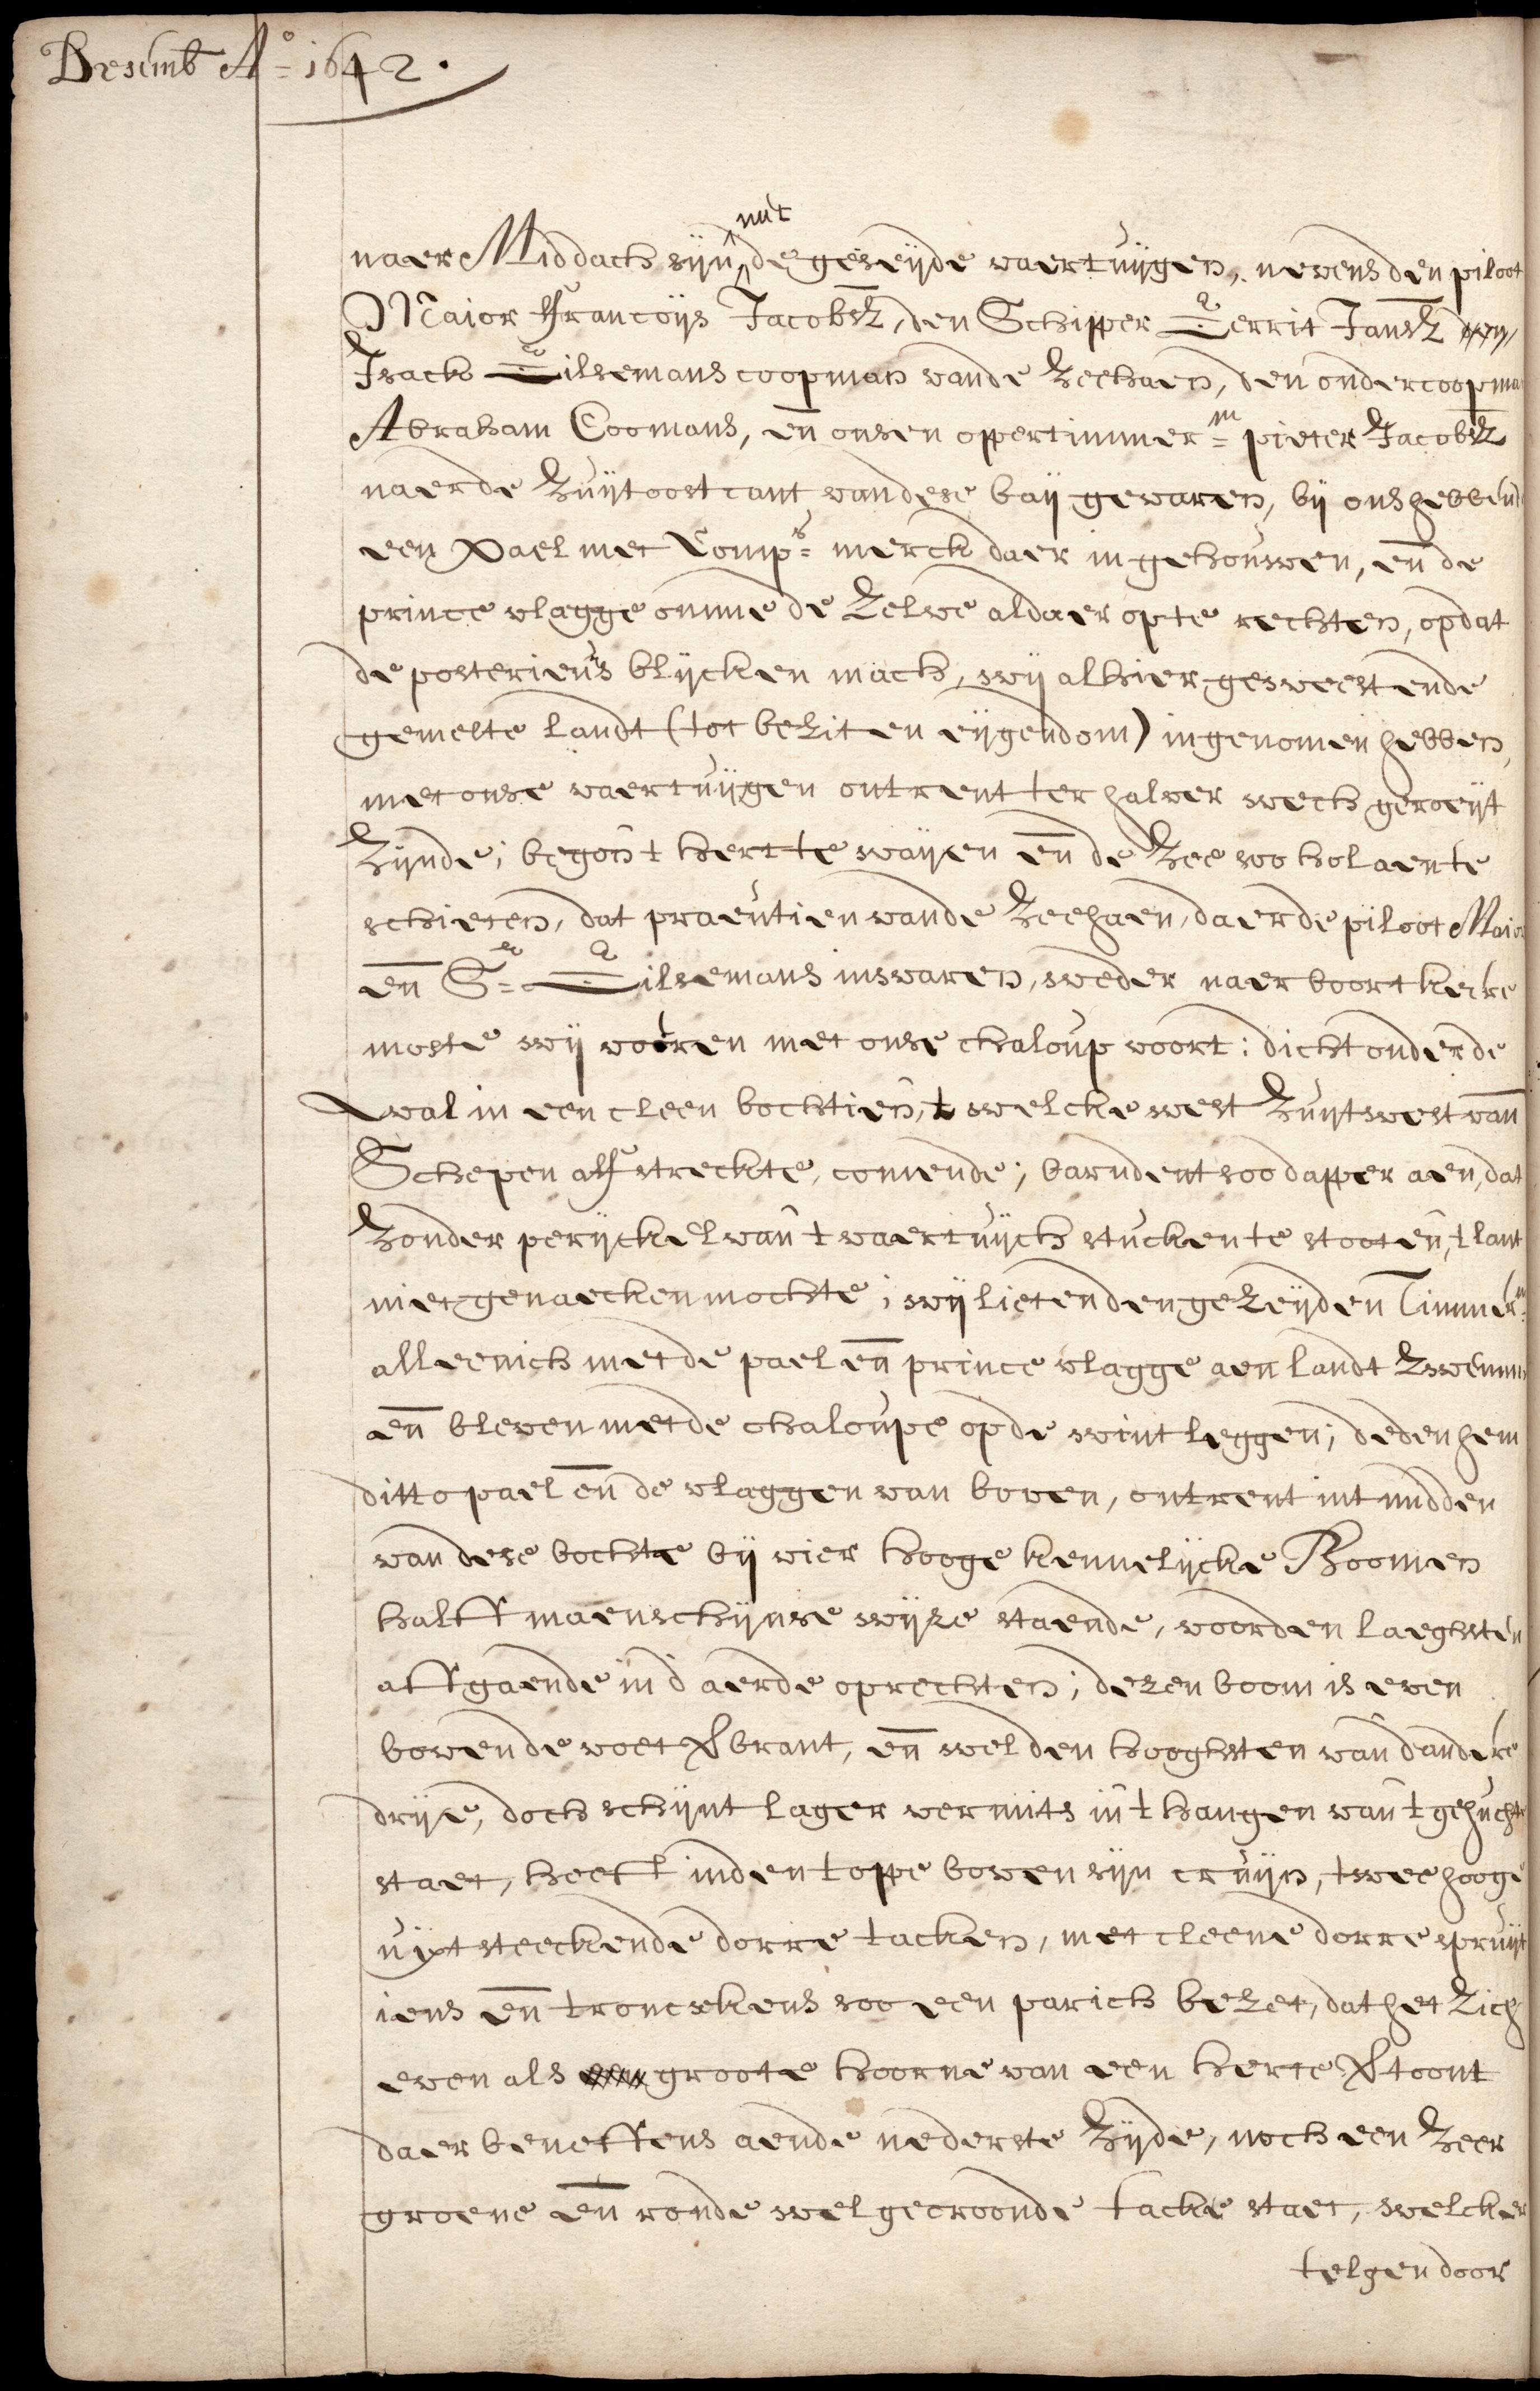 Desemb A° 1642.
met
naer Middach sijn de geseijde vaertuijgen, nevens den piloot
Maior ffrancoijs Jacobsz, den Schipper Gerrit Jansz
Isack Gilsemans coopman vande Zeehaen, den ondercoopma
Abraham Coomans, en onsen oppertimmer=m pieter Jacobsz
naerde Zuijtoost cant van dese baij gevaren, bij ons hebbend
een Pael met Comps= merck daer in gehouwen, en de
prince vlagge omme de Zelve aldaer opte rechten, opdat
de posterieurs blijcken mach, wij alhier geweest ende
gemelte landt (tot bezit en eijgendom) ingenomen hebben,
met onse vaertuijgen ontrent ter halver wech geroeijt
Zijnde; begon t hert te waijen en de Zee so hol aen te
schieten, dat praeutien vande Zeehaen, daer de piloot Maior
en Sr= Gilsemans in waren, weder naer boort keere
moste wij voeren met onse chaloup voort: dicht onder de
wal in een cleen bochtien, t welcke west Zuijtwest van
Schepen aff streckte, comende; barndent soo dapper aen, dat
Zonder perijckel van t vaertuijch stucken te stooten, t lant
niet genaecken mochte; wij lieten den gezeijden Timmerm=
alleenich met de pael en prince vlagge aen landt Zwemm
en bleven met de chaloupe op de wint leggen; deden hem
ditto pael en de vlaggen van boven, ontrent int midden
van dese bochte bij vier hooge kennelijcke Boomen
halff maenschijnse wijze staende, voor den laeghsten
affgaende in d aerde oprechten; dezen boom is even
boven de voet Verbrant, en wel den hooghsten van d andere
drije, doch schijnt lager vermits in t hangen van t gehucht
staet, heeft inden toppe boven sijn cruijn, twee hooge
uijtsteeckende dorre tacken, met cleene dorre spruijt
iens en troncxkens soo een parich bezet, dat het Zich
even als groote hoorne van een herte Vertoont
daer beneffens aende nederste Zijde, noch een Zeer
groene en ronde wel gecroonde tacke staet, welcker
telgen door